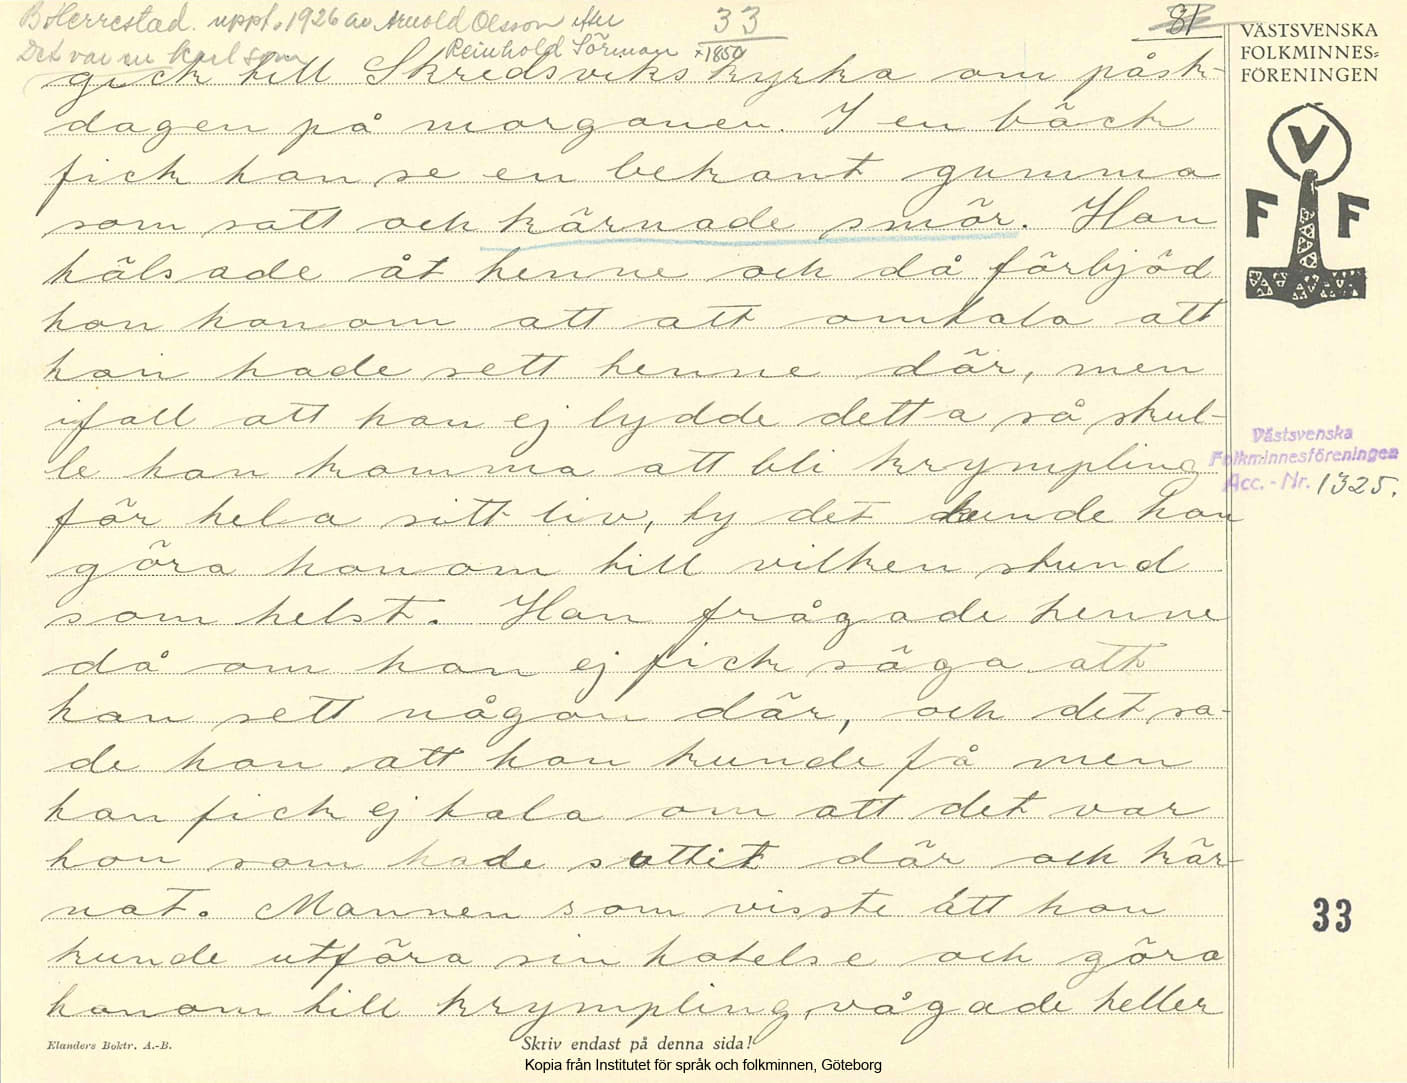 Bo Herrestad. uppt. 1926 av Arnold Olsson efter
Reinhold Sörman *1850
33
81
Det var en karl som
gick till Skredsviks kyrka om påsk-
dagen på morgonen. I en bäck
fick han se en bekant gumma
som satt och kärnade smör. Han
hälsade åt henne och då förbjöd
hon honom att att omtala att
han hade sett henne där, men
ifall att han ej lydde detta så skul-
le han komma att bli krympling
för hela sitt liv, ty det kunde hon
göra honom till vilken stund
som helst. Han frågade henne
då om han ej fick säga att
han sett någon där, och det sa-
de hon att han kunde få men
han fick ej tala om att det var
hon som hade suttit där och kär-
nat. Mannen som visste att hon
kunde utföra sin hotelse och göra
honom till krympling, vågade heller
Elanders Boktr. A.-B.
Skriv endast på denna sida!
Kopia från Institutet för språk och folkminnen, Göteborg
VÄSTSVENSKA
FOLKMINNES-
FÖRENINGEN
V
F F
Västsvenska
Folkminnesföreningen
Acc. - Nr. 1325.
33